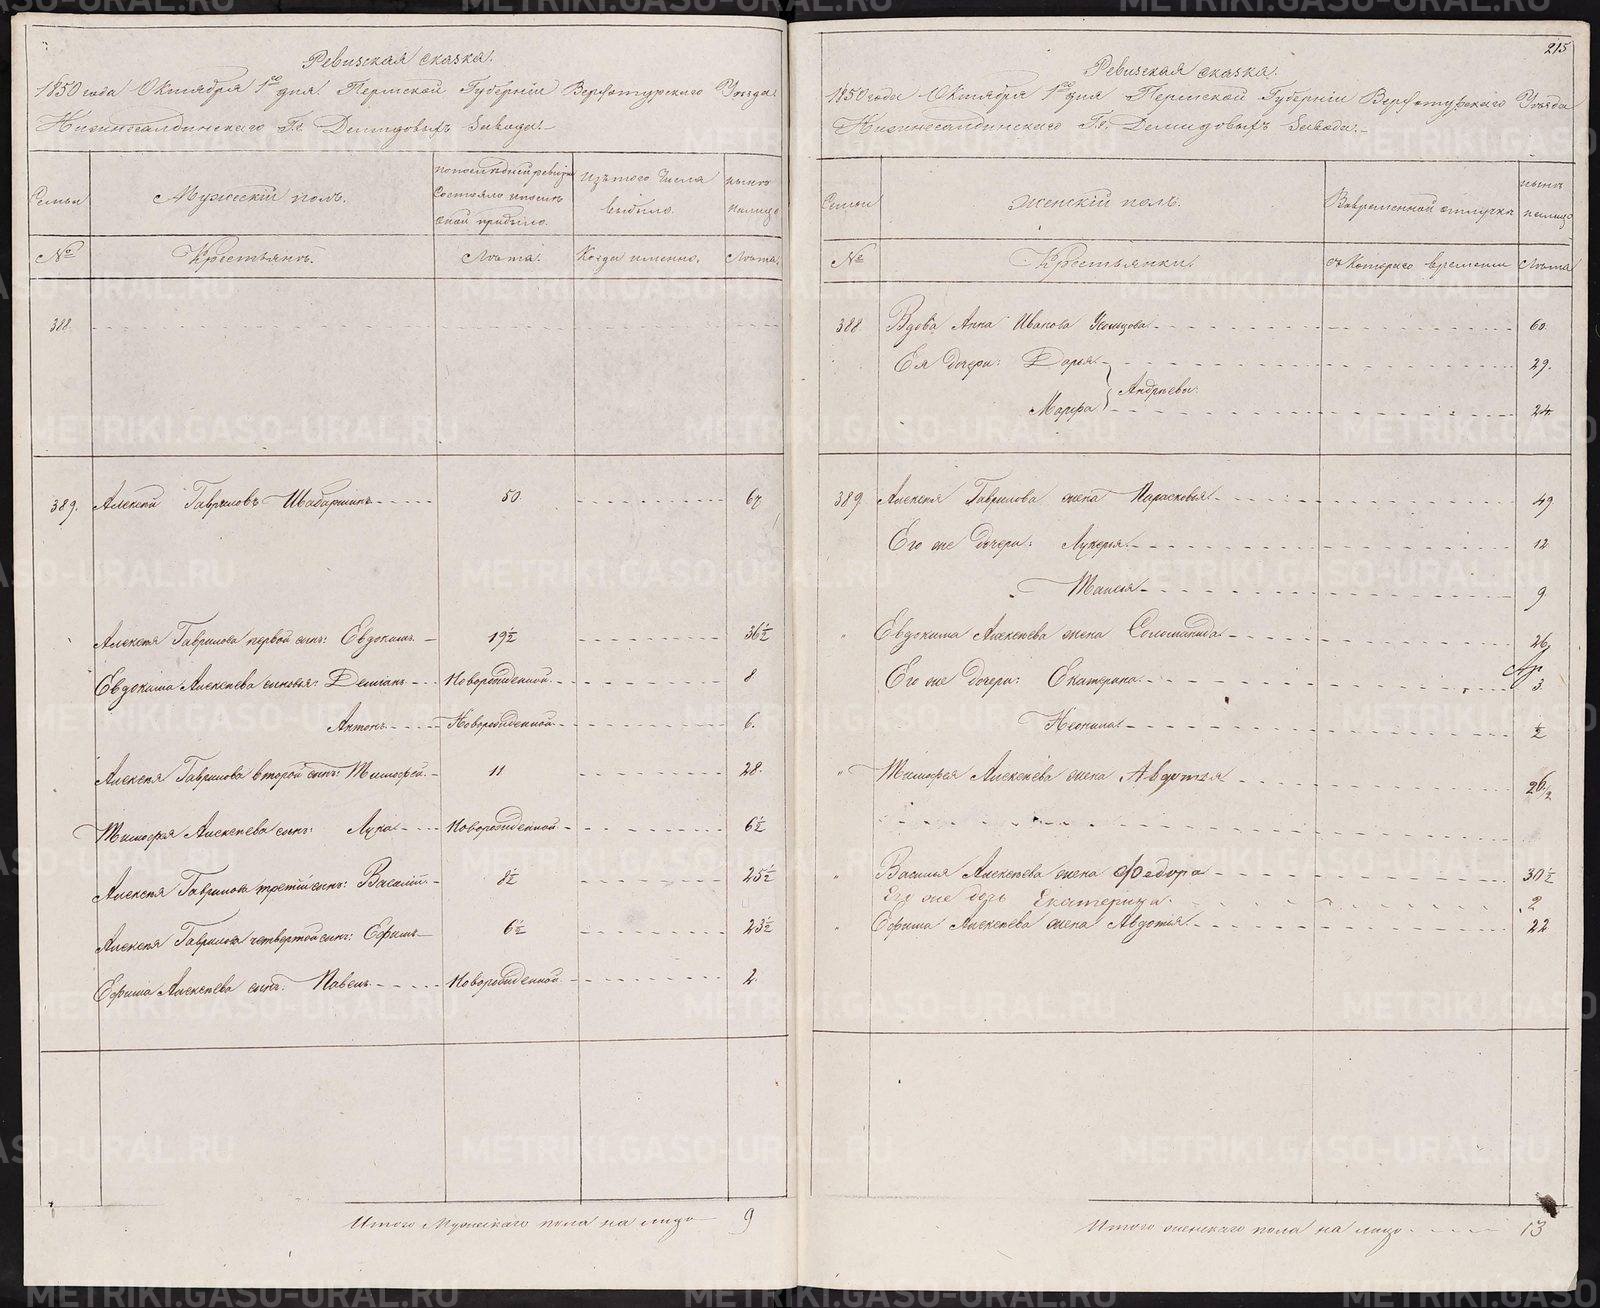 Ревизская сказка.
1850 года Октября 1го дня Пермской Губернiи Верхотурскаго Уѣзда
Нижнесалдинскаго Гг. Демидовыхъ Завода.
Семьи
Мужескiй полъ.
по последней ревизiи состояло и после оной прибыло.
Изъ того числа выбыло.
ныне на лицо
№
Крестьянъ.
Лѣта.
Когда именно.
Лѣта.
388.
389. Алексѣй Гавриловъ Шабаршинъ 50 67
Алексѣя Гаврилова первой сынъ: Евдокимъ 19½ 36½
Евдокима Алексѣева сыновья: Демiанъ Новорожденной 8
Антонъ Новорожденной 6.
Алексѣя Гаврилова второй сынъ: Тимофей. 11 28.
Тимофея Алексѣева сынъ: Лука Новорожденной 6½
Алексѣя Гаврилова третiй сынъ: Василiй. 8½ 25½
Алексѣя Гаврилова четвертой сынъ: Ефимъ 6½ 23½
Ефима Алексѣева сынъ: Павелъ Новорожденной 2.
Итого Мужескаго пола на лицо 9
215
Ревизская сказка.
1850 года Октября 1го дня Пермской Губернiи Верхотурскаго Уѣзда
Нижнесалдинскаго Гг. Демидовыхъ Завода.
Семьи
Женскiй полъ.
Во временной отлучке
ныне на лицо
№
Крестьянки.
съ Котораго времени
Лѣта
388 Вдова Анна Иванова 60.
Ея дочери: Дарья 29.
Андрѣевы.
Марфа 24.
389. Алексѣя Гаврилова жена Парасковья 49
Его же дочери: Лукерья 12
Таисья 9
" Евдокима Алексѣева жена Соломанида 26
Его же дочери: Екатерина 3.
Неонила ½
" Тимофея Алексѣева жена Авдотья 26/2
" Василья Алексѣева жена Федора 30½
Его же дочь Екатерина. 2
" Ефима Алексѣева жена Авдотья 22
Итого женскаго пола на лицо 13
METRIKI.GASO-URAL.RU